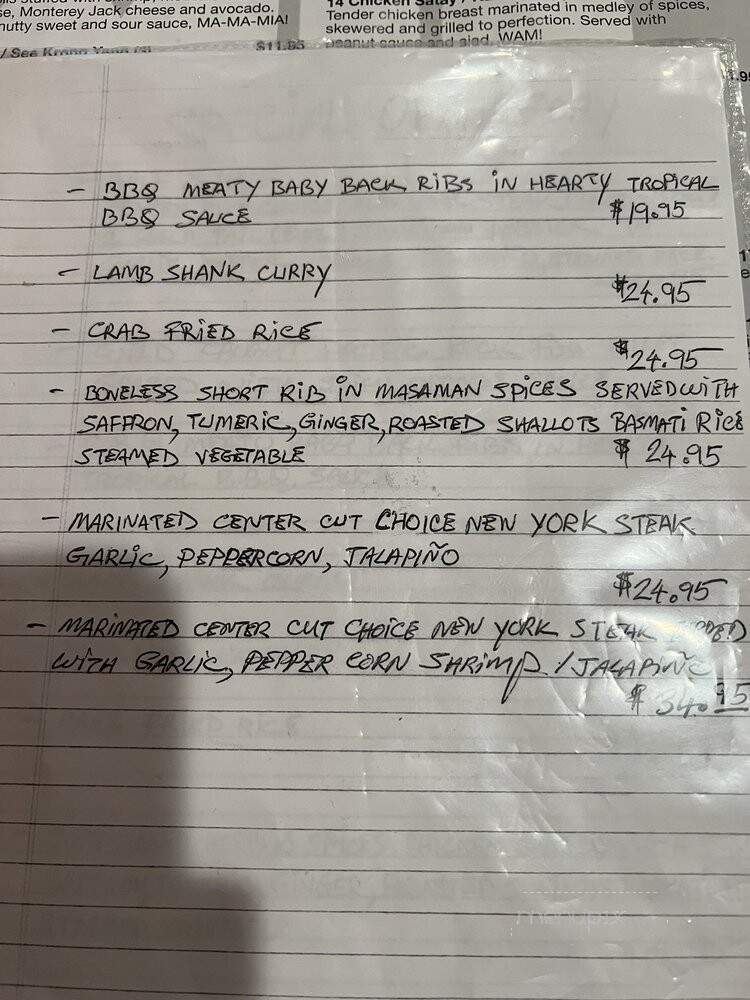 se, Monterey Jack cheese and avocado.
nutty sweet and sour sauce, MA-MA-MIA!
14 Chicken Satay /
Tender chicken breast marinated in medley of spices,
skewered and grilled to perfection. Served with
peanut sauce and
WAM!
/ See Krong Yang (3)
$11.95
- BBQ MEATY BABY BACK RIBS IN HEARTY TROPICAL
BBQ SAUCE $19.95
- LAMB SHANK CURRY
$24.95
- CRAB FRIED RICE
$24.95
- BONELESS SHORT RIB IN MASAMAN SPICES SERVED WITH
SAFFRON, TUMERIC, GINGER, ROASTED SHALLOTS BASMATI RICE
STEAMED VEGETABLE $24.95
- MARINATED CENTER CUT CHOICE NEW YORK STEAK
GARLIC, PEPPERCORN, JALAPIÑO
$24.95
- MARINATED CENTER CUT CHOICE NEW YORK STEAK
WITH GARLIC, PEPPER CORN SHRIMP. / JALAPIÑO
$34.95